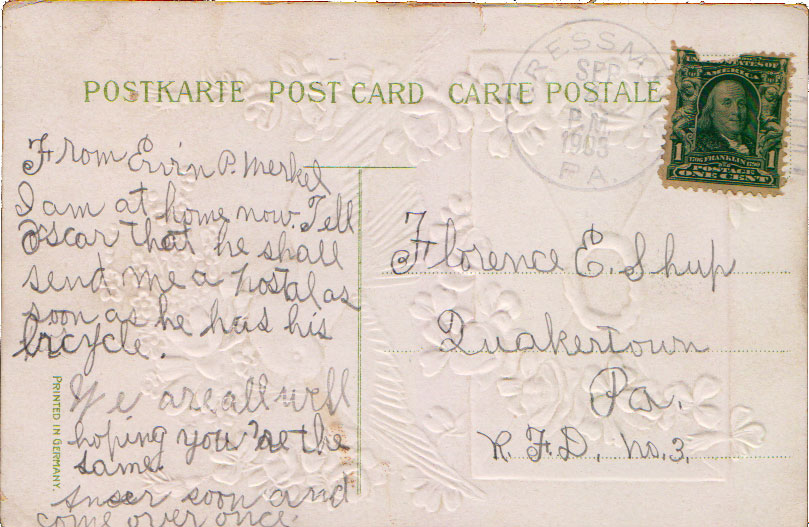 POSTKARTE POST CARD CARTE POSTALE
RESSM
SEP
5
P.M.
PA
UNITED STATES OF
AMERICA
1 1
FRANKLIN
POSTAGE
ONE CENT
From Ervin P. Merkel
I am at home now. Tell
Oscar that he shall
send me a postal as
soon as he has his
bicycle.
We are all well
hoping you're the
same.
Anser soon and
come over once.
Florence E. Shup
Quakertown
Pa.
R. F. D. No. 3.
PRINTED IN GERMANY.